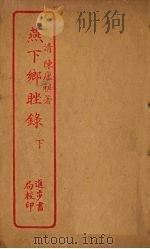 清陳康祺著
燕下鄉脞錄
下
進步書
局校印